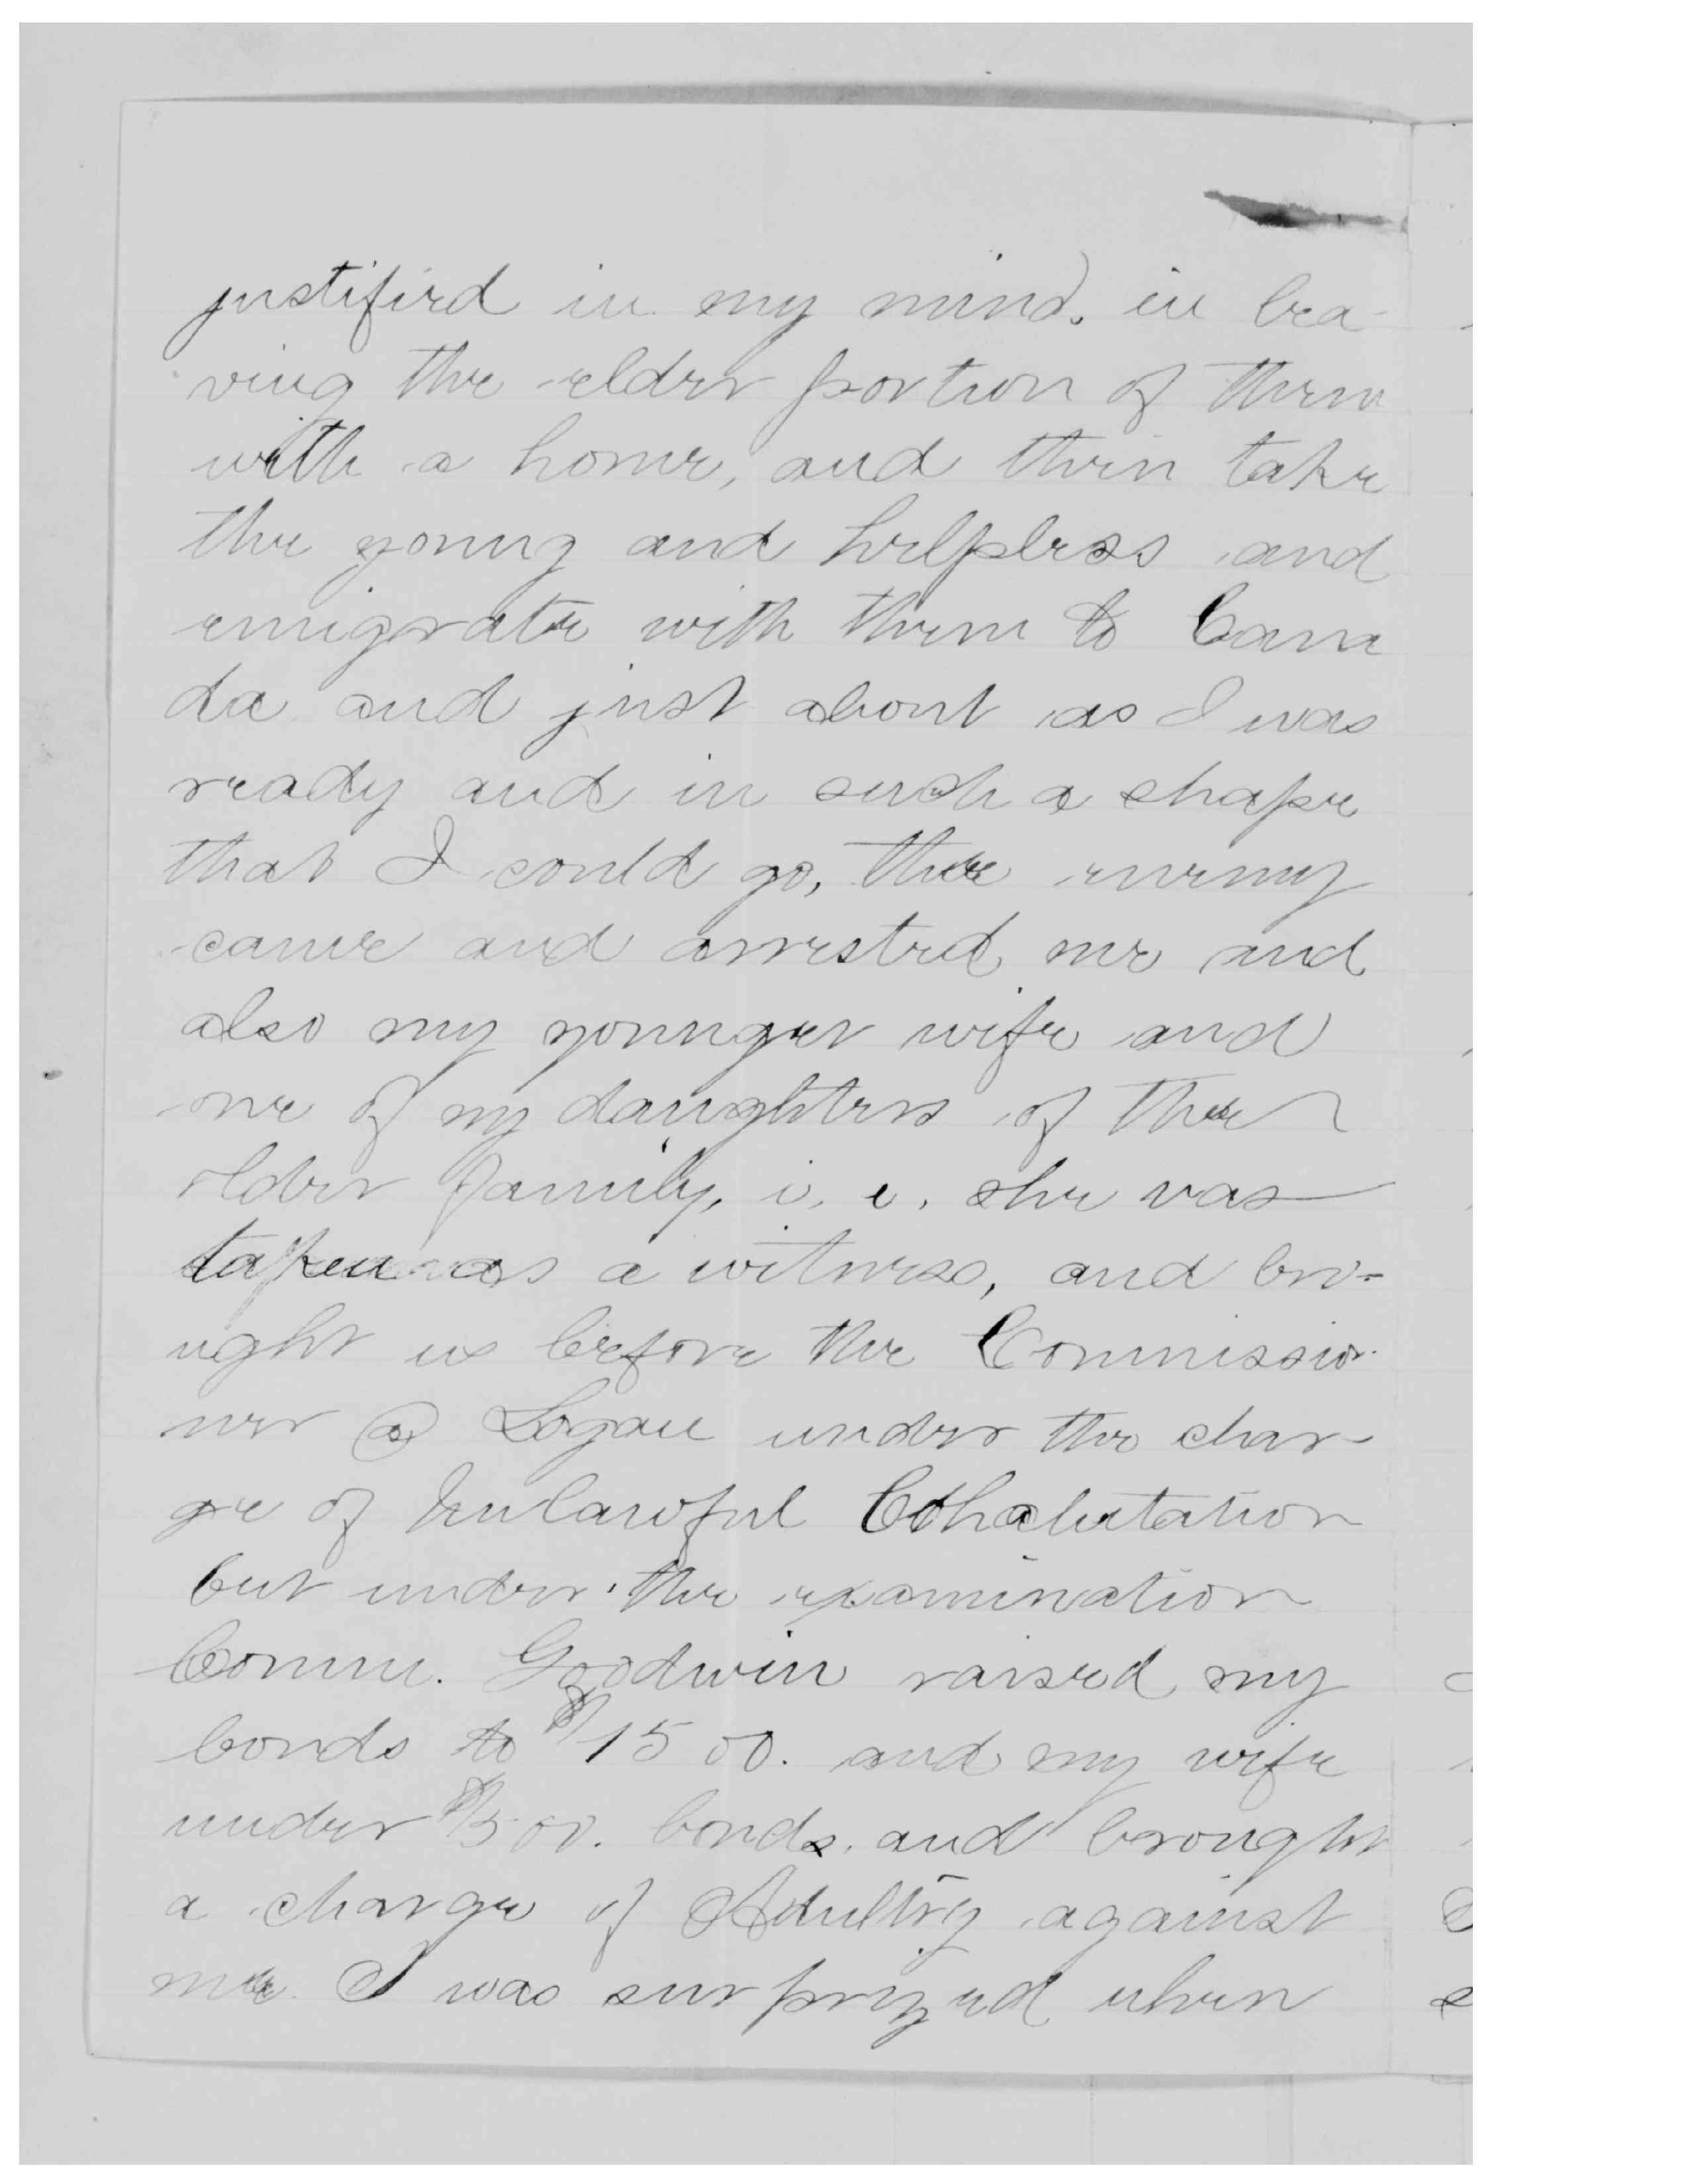 justified in my mind, in lea-
ving the elder portion of them
with a home, and then take
the young and helpless and
emigrate with them to Cana
da and just about as I was
ready and in such a shape
that I could go, the enemy
came and arrested me and
also my younger wife and
one of my daughters of the
older family, i. e. she was
taken as a witness, and bro-
ught us before the Commissio-
ner @ Logan under the char-
ge of Unlawful Cohabitation
but under the examination
Comm. Goodwin raised my
bonds to $1500. and my wife
under $500. bonds, and brought
a charge of Adultry against
me. I was surprized when